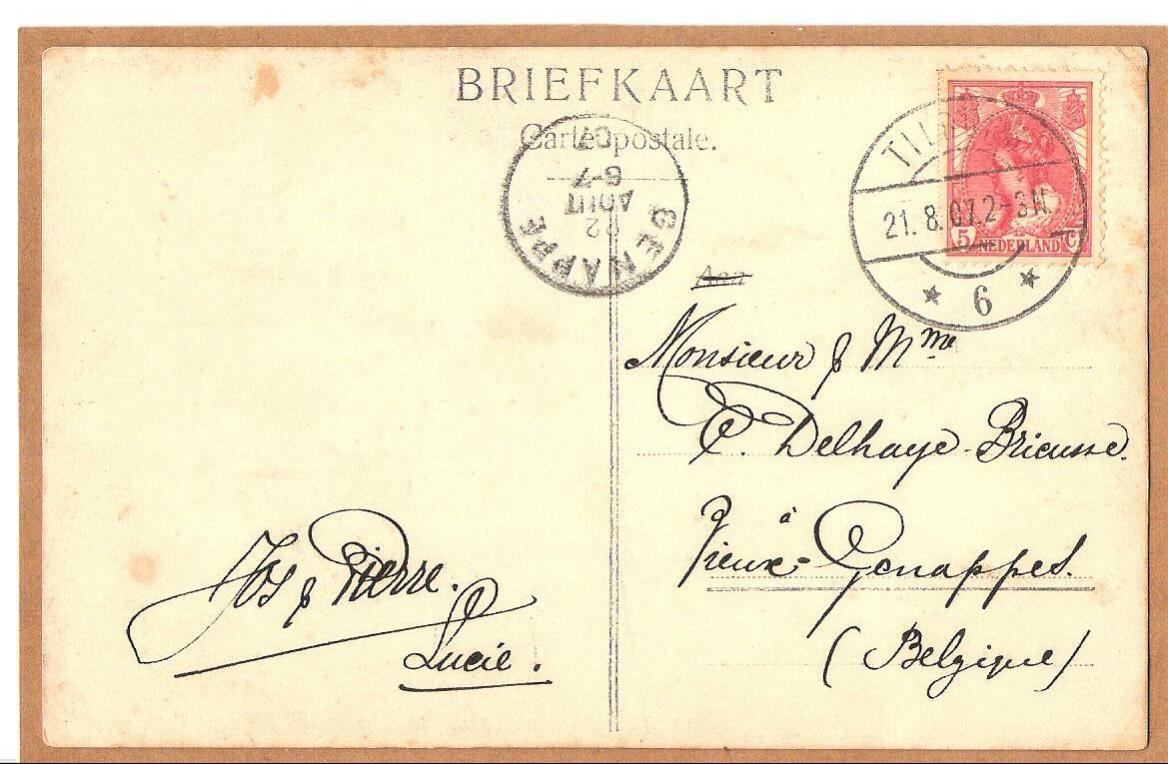 BRIEFKAART
Carte postale.
GENAPPE
22
AOUT
6-7
07
21. 8. 07. 2-3N.
6
5 NEDERLAND Ct
Aan
Monsieur & Mme
E. Delhaye-Brieusse.
à
Vieux-Genappes.
(Belgique)
Jos & Pierre.
Lucie.